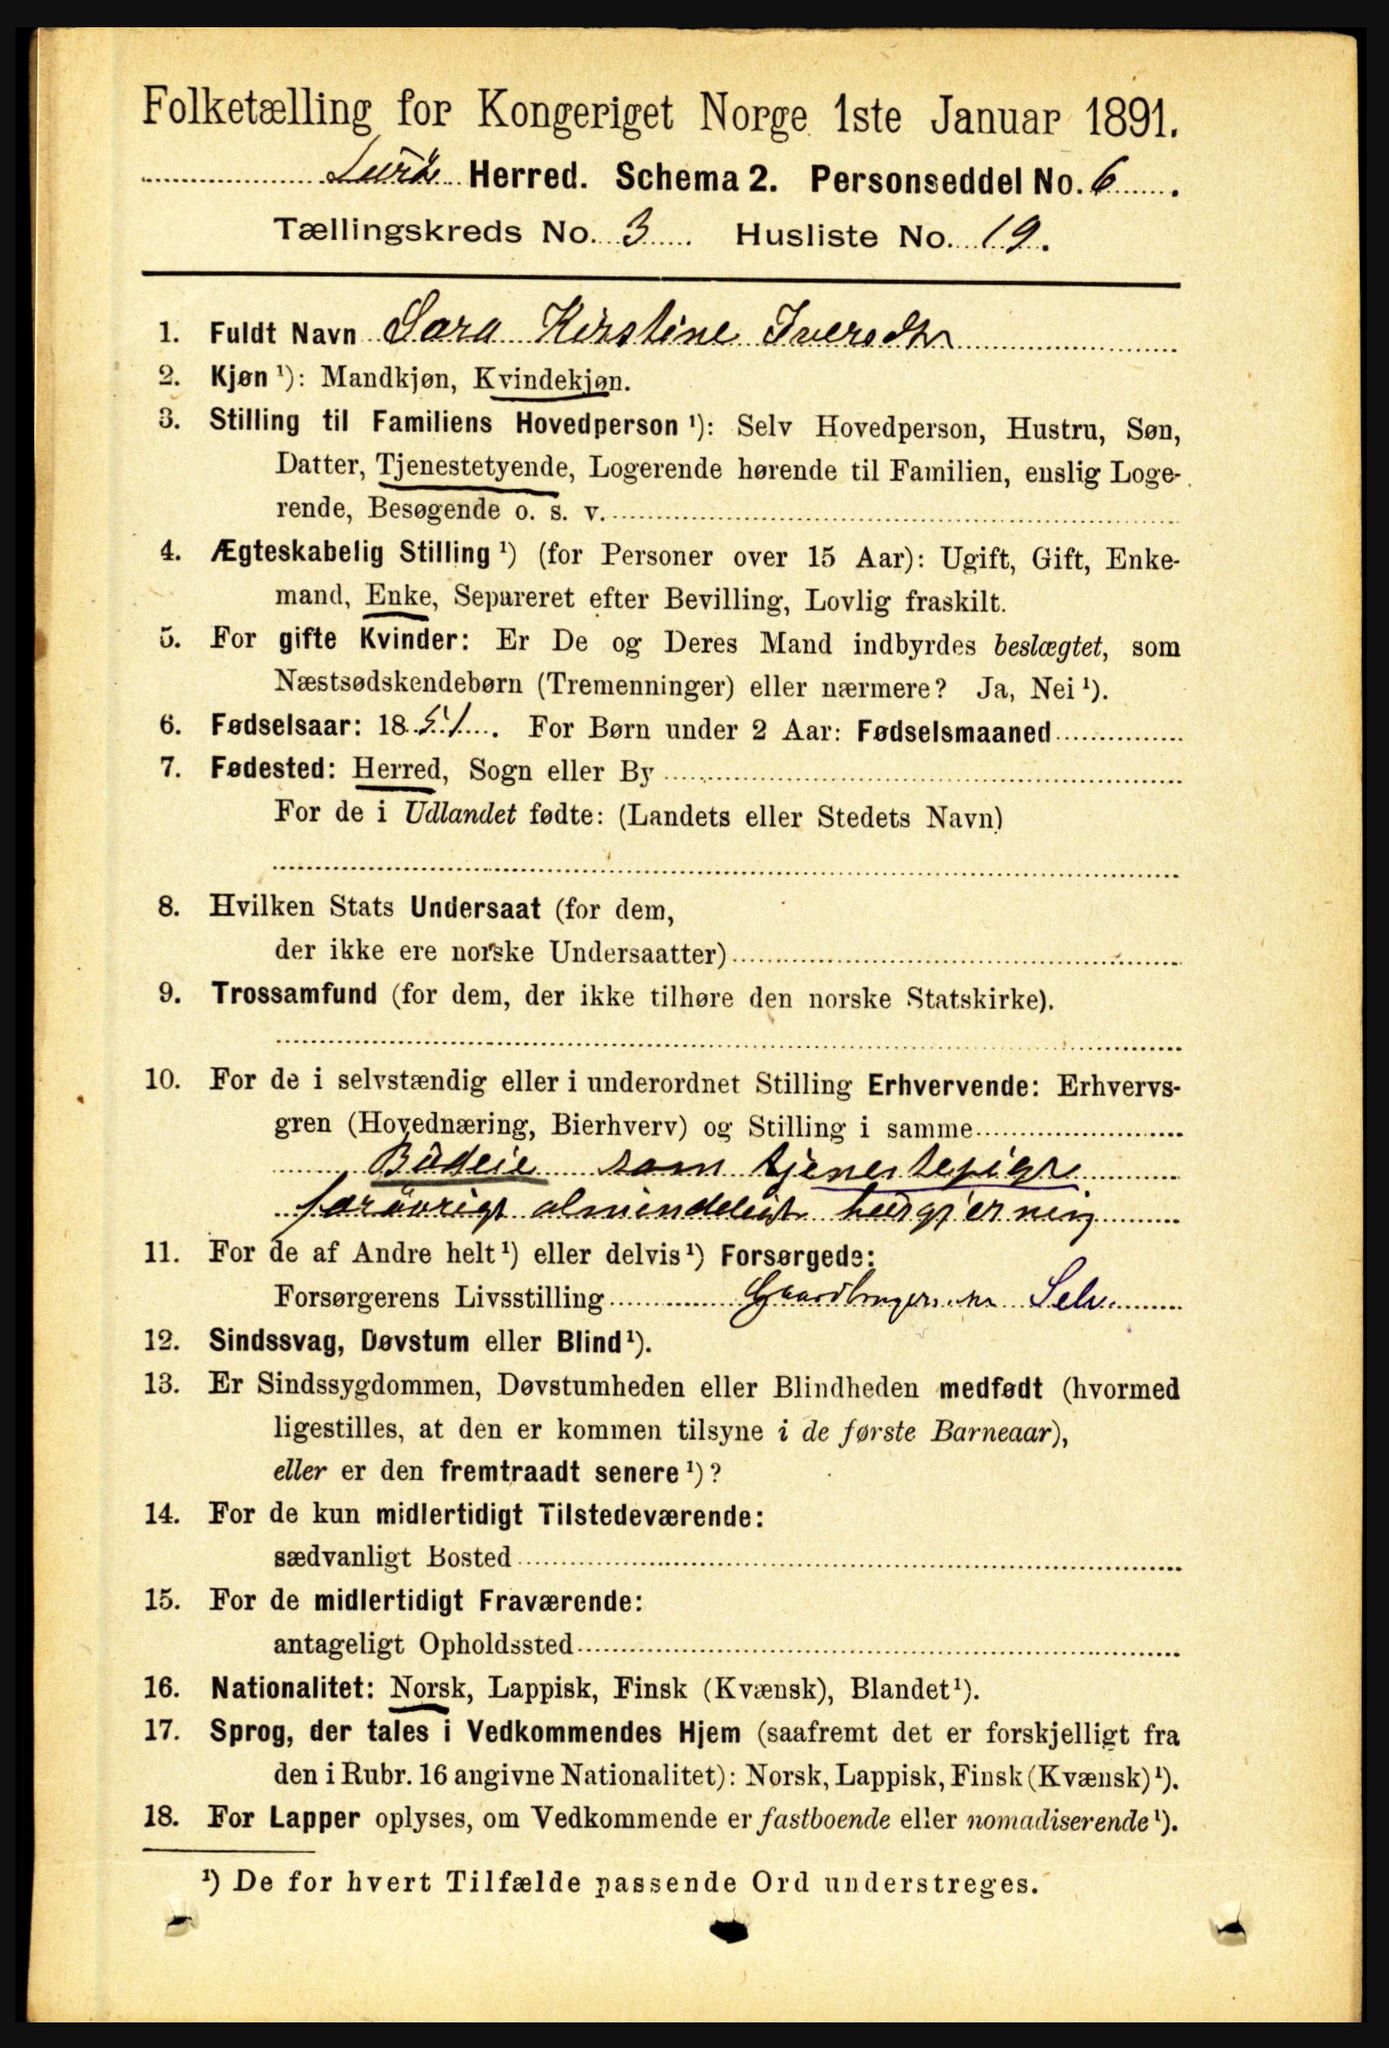 Folketælling for Kongeriget Norge 1ste Januar 1891.
Lurö Herred. Schema 2. Personseddel No. 6.
Tællingskreds No. 3. Husliste No. 19.
1. Fuldt Navn Sara Kirstine Iversdtr
2. Kjøn ¹): Mandkjøn, Kvindekjøn.
3. Stilling til Familiens Hovedperson ¹): Selv Hovedperson, Hustru, Søn,
Datter, Tjenestetyende, Logerende hørende til Familien, enslig Loge-
rende, Besøgende o. s. v.
4. Ægteskabelig Stilling ¹) (for Personer over 15 Aar): Ugift, Gift, Enke-
mand, Enke, Separeret efter Bevilling, Lovlig fraskilt.
5. For gifte Kvinder: Er De og Deres Mand indbyrdes beslægtet, som
Næstsødskendebørn (Tremenninger) eller nærmere? Ja, Nei ¹).
6. Fødselsaar: 1851. For Børn under 2 Aar: Fødselsmaaned
7. Fødested: Herred, Sogn eller By
For de i Udlandet fødte: (Landets eller Stedets Navn)
8. Hvilken Stats Undersaat (for dem,
der ikke ere norske Undersaatter)
9. Trossamfund (for dem, der ikke tilhøre den norske Statskirke).
10. For de i selvstændig eller i underordnet Stilling Erhvervende: Erhvervs-
gren (Hovednæring, Bierhverv) og Stilling i samme
Budeie som tjenestepige
forövrigt almindelig husgjerning
11. For de af Andre helt ¹) eller delvis ¹) Forsørgede:
Forsørgerens Livsstilling Selv
12. Sindssvag, Døvstum eller Blind ¹).
13. Er Sindssygdommen, Døvstumheden eller Blindheden medfødt (hvormed
ligestilles, at den er kommen tilsyne i de første Barneaar),
eller er den fremtraadt senere ¹)?
14. For de kun midlertidigt Tilstedeværende:
sædvanligt Bosted
15. For de midlertidigt Fraværende:
antageligt Opholdssted
16. Nationalitet: Norsk, Lappisk, Finsk (Kvænsk), Blandet ¹).
17. Sprog, der tales i Vedkommendes Hjem (saafremt det er forskjelligt fra
den i Rubr. 16 angivne Nationalitet): Norsk, Lappisk, Finsk (Kvænsk) ¹).
18. For Lapper oplyses, om Vedkommende er fastboende eller nomadiserende ¹).
¹) De for hvert Tilfælde passende Ord understreges.